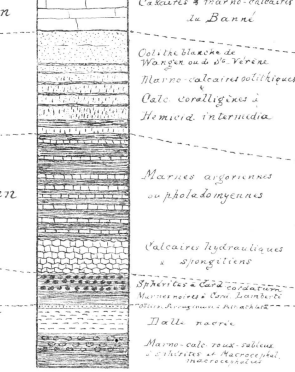 Calcaires & marno-calcaires
du Banné
n
Oolithe blanche de
Wangen ou de Ste-Vérène
Marno-calcaires oolithiques
&
Calc coralligènes à
Hemicid intermedia
Marnes argoviennes
ou pholadomyennes
n
Calcaires hydrauliques
& spongitiens
Sphérites à Card cordatum
Marnes noires à Lamberti
Dalle nacrée
Marno-calc roux-sableux
à Sphérites et Macrocephal.
macrocephalus